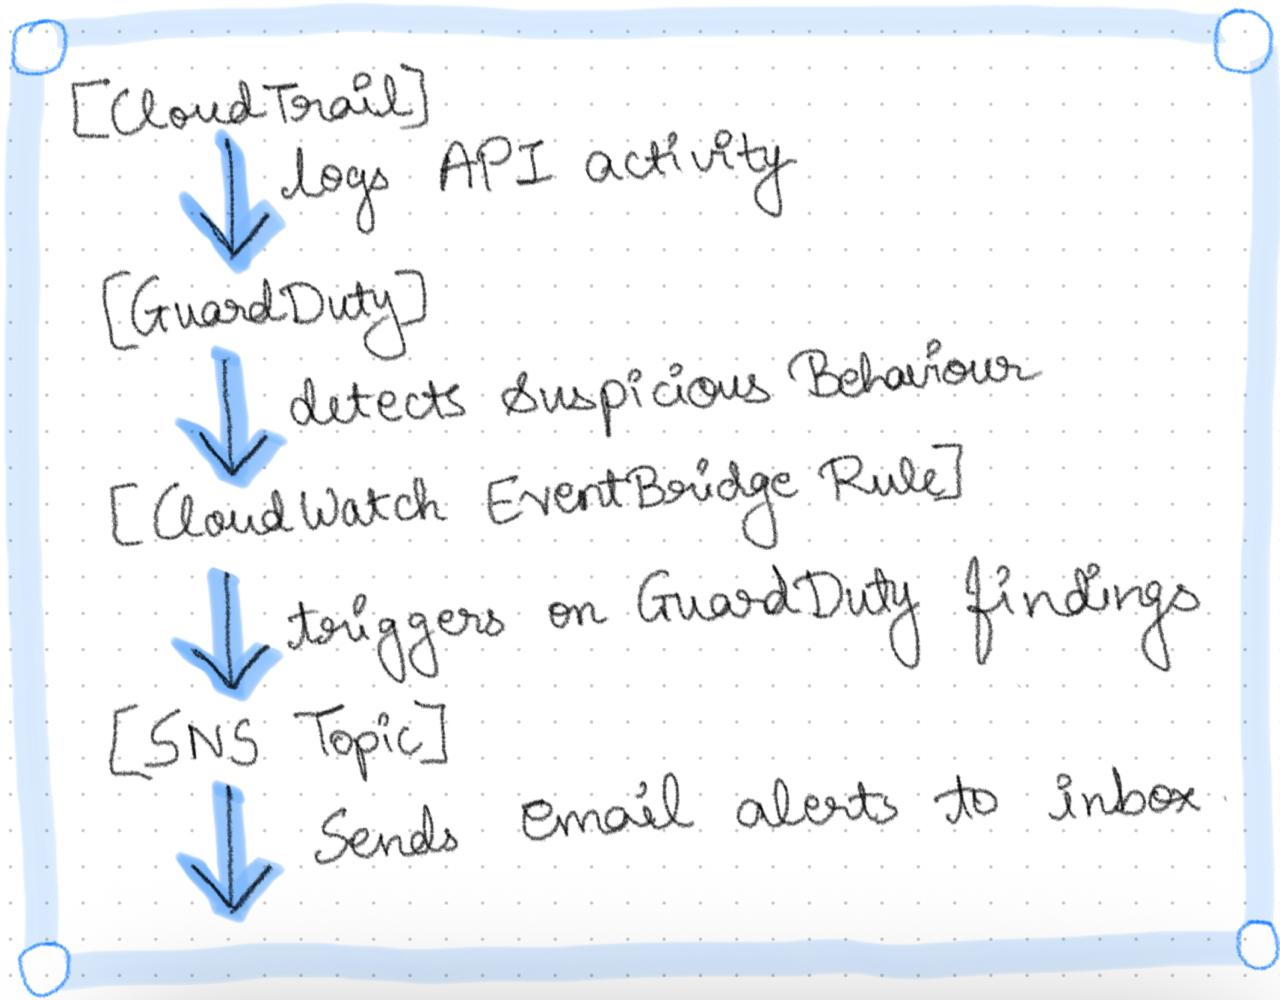 [CloudTrail]
logs API activity
[GuardDuty]
detects Suspicious Behaviour
[CloudWatch EventBridge Rule]
triggers on GuardDuty findings
[SNS Topic]
Sends Email alerts to inbox